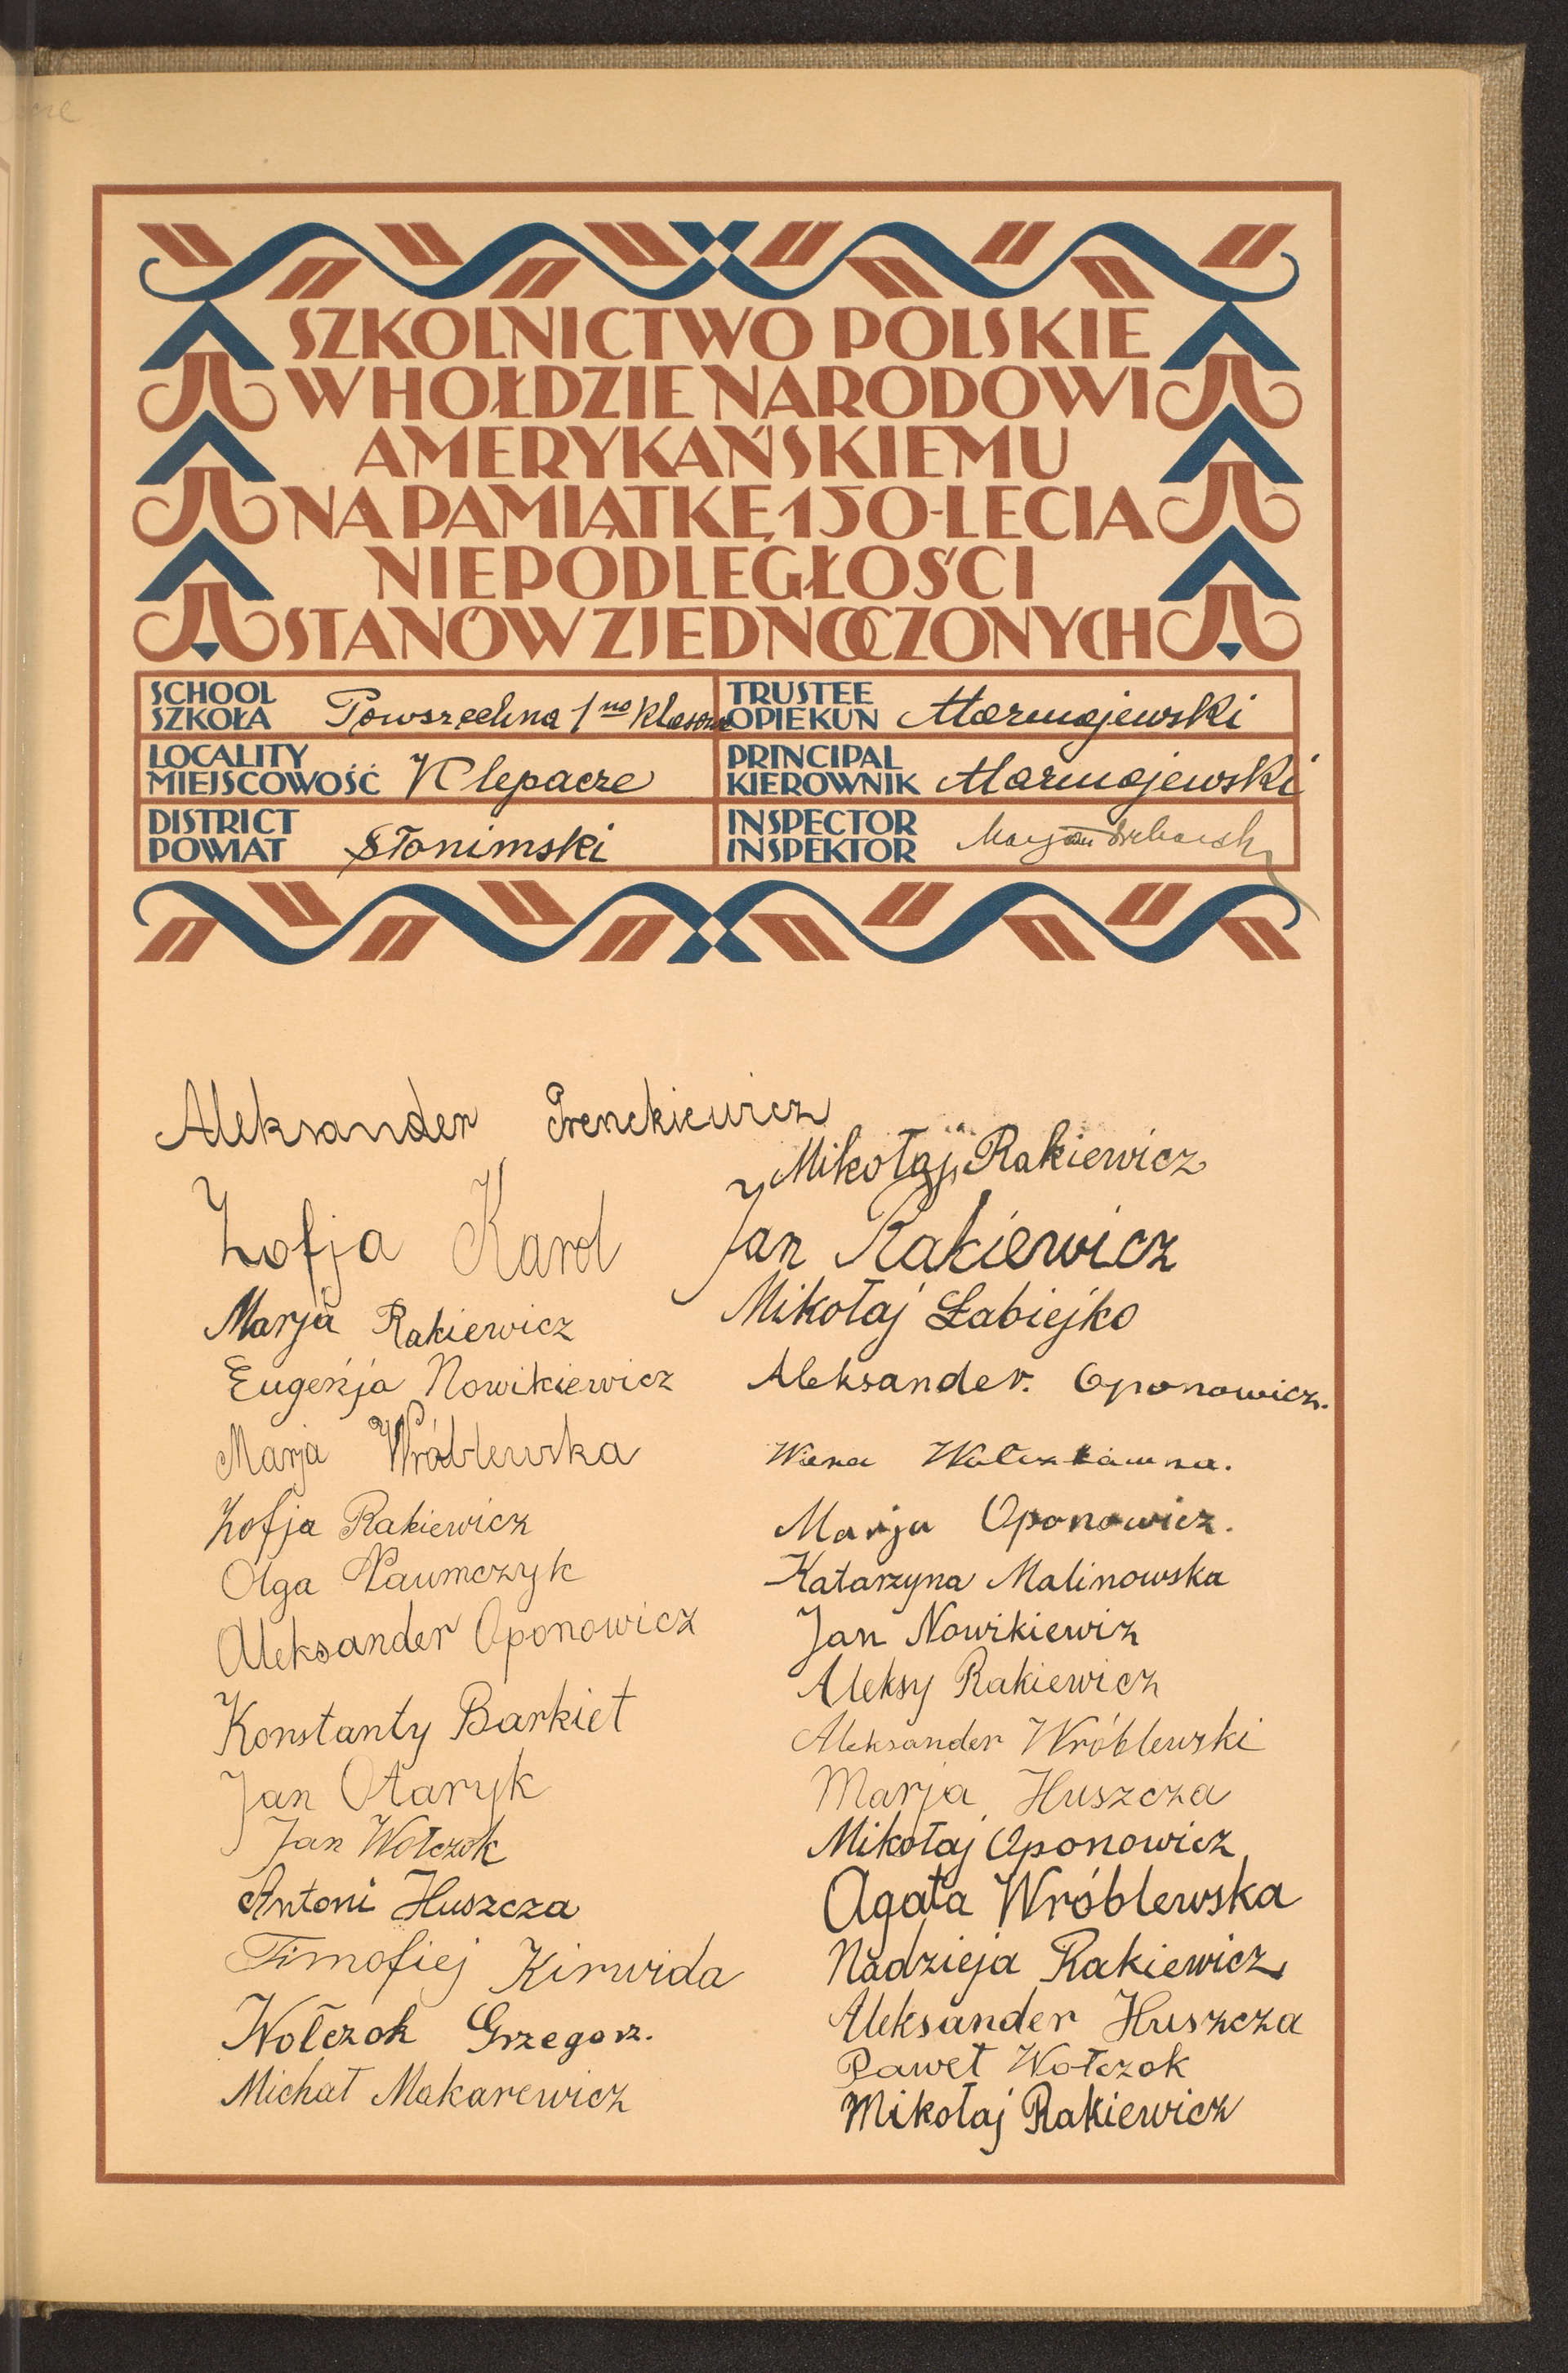 SZKOLNICTWO POLSKIE
W HOŁDZIE NARODOWI
AMERYKAŃSKIEMU
NA PAMIĄTKĘ 150-LECIA
NIEPODLEGŁOŚCI
STANÓW ZJEDNOCZONYCH
SCHOOL
SZKOŁA Powszechna 1no klasowa
TRUSTEE
OPIEKUN Marmajewski
LOCALITY
MIEJSCOWOŚĆ Klepacze
PRINCIPAL
KIEROWNIK Marmajewski
DISTRICT
POWIAT Słonimski
INSPECTOR
INSPEKTOR Marjan
Aleksander Prenckiewicz
Zofja Karol
Marja Rakiewicz
Eugenja Nowikiewicz
Marja Wróblewska
Zofja Rakiewicz
Olga Naumczyk
Aleksander Oponowicz
Konstanty Barkiet
Jan Otaryk
Jan Wołczok
Antoni Huszcza
Timofiej Kirwida
Wołczok Grzegorz.
Michał Makarewicz
Mikołaj Rakiewicz
Jan Rakiewicz
Mikołaj Łabiejko
Aleksander. Oponowicz.
Wiera
Marja Oponowicz.
Katarzyna Malinowska
Jan Nowikiewiz
Aleksy Rakiewicz
Aleksander Wróblewski
Marja Huszcza
Mikołaj Oponowicz
Agata Wróblewska
Nadzieja Rakiewicz
Aleksander Huszcza
Paweł Wołczok
Mikołaj Rakiewicz